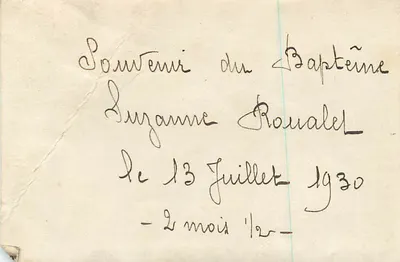 Souvenir du Baptême
Suzanne Roualet
le 13 Juillet 1930
- 2 mois 1/2 -